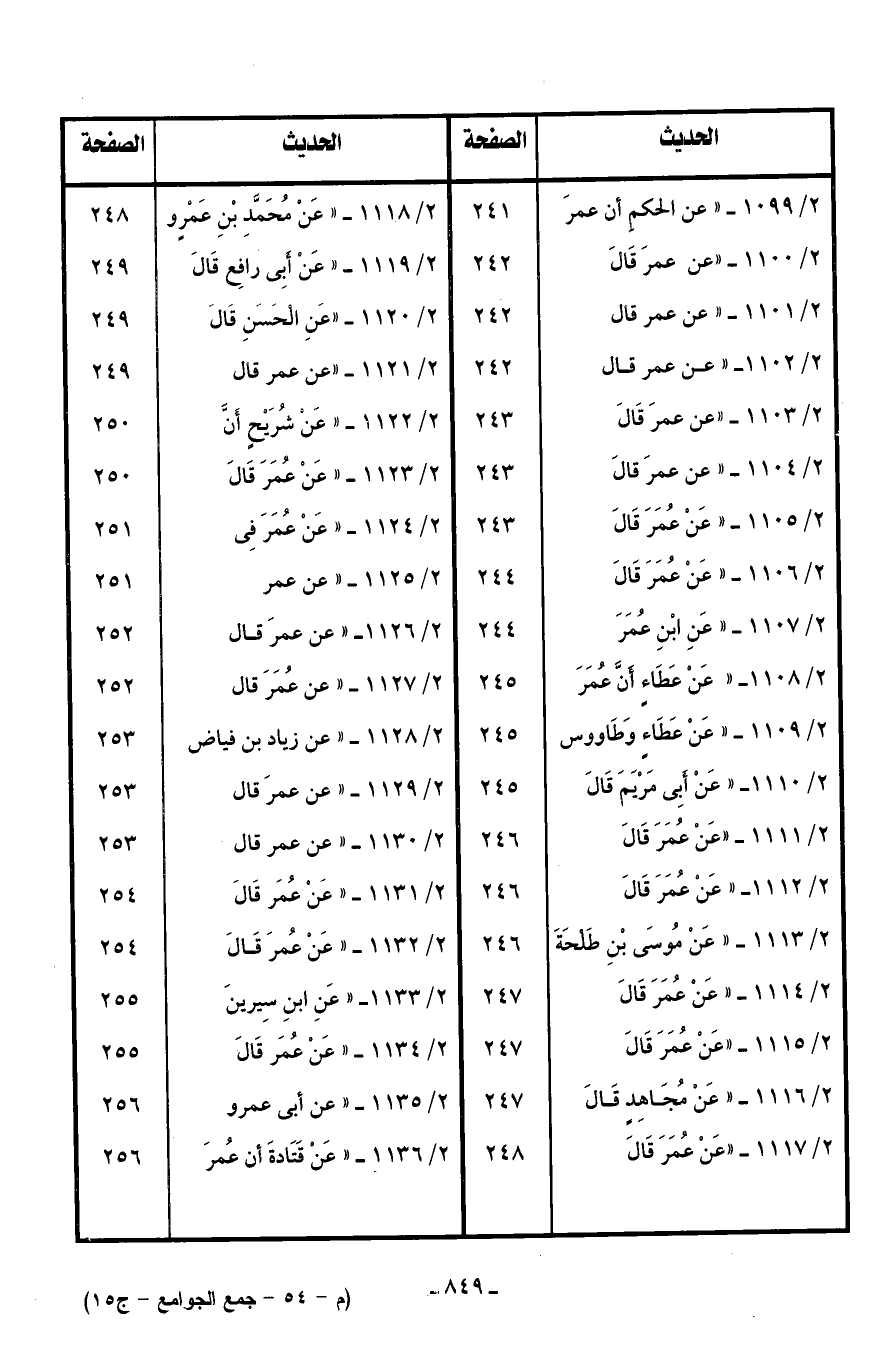 الحديث الصفحة الحديث الصفحة
٢/ ١٠٩٩ ـ « عن الحكمِ أن عمرَ ٢٤١ ٢/ ١١١٨ ـ « عَنْ مُحَمَّدِ بْنِ عَمْرٍو ٢٤٨
٢/ ١١٠٠ ـ «عن عمرَ قَالَ ٢٤٢ ٢/ ١١١٩ ـ « عَنْ أَبِى رافِعٍ قَالَ ٢٤٩
٢/ ١١٠١ ـ « عن عمر قال ٢٤٢ ٢/ ١١٢٠ ـ «عَنِ الْحَسَنِ قَالَ ٢٤٩
٢/ ١١٠٢ـ « عـن عمر قـال ٢٤٢ ٢/ ١١٢١ ـ «عن عمر قال ٢٤٩
٢/ ١١٠٣ ـ «عن عمرَ قَالَ ٢٤٣ ٢/ ١١٢٢ ـ « عَنْ شُرَيْحٍ أَنَّ ٢٥٠
٢/ ١١٠٤ ـ « عن عمرَ قالَ ٢٤٣ ٢/ ١١٢٣ ـ « عَنْ عُمَرَ قَالَ ٢٥٠
٢/ ١١٠٥ ـ « عَنْ عُمَرَ قَالَ ٢٤٣ ٢/ ١١٢٤ ـ « عَنْ عُمَرَ فِى ٢٥١
٢/ ١١٠٦ ـ « عَنْ عُمَرَ قَالَ ٢٤٤ ٢/ ١١٢٥ ـ « عن عمر ٢٥١
٢/ ١١٠٧ ـ « عَنِ ابْنِ عُمَرَ ٢٤٤ ٢/ ١١٢٦ـ « عن عمرَ قـال ٢٥٢
٢/ ١١٠٨ـ « عَنْ عَطَاءٍ أَنَّ عُمَرَ ٢٤٥ ٢/ ١١٢٧ ـ « عن عُمَرَ قال ٢٥٢
٢/ ١١٠٩ ـ « عَنْ عَطَاءٍ وَطَاووس ٢٤٥ ٢/ ١١٢٨ ـ « عن زياد بن فياض ٢٥٣
٢/ ١١١٠ـ « عَنْ أَبِى مَرْيَمَ قَالَ ٢٤٥ ٢/ ١١٢٩ ـ « عن عمرَ قال ٢٥٣
٢/ ١١١١ ـ «عَنْ عُمَرَ قَالَ ٢٤٦ ٢/ ١١٣٠ ـ « عن عمر قال ٢٥٣
٢/ ١١١٢ـ « عَنْ عُمَرَ قَالَ ٢٤٦ ٢/ ١١٣١ ـ « عَنْ عُمَر قَالَ ٢٥٤
٢/ ١١١٣ ـ « عَنْ مُوسَى بْنِ طَلْحَةَ ٢٤٦ ٢/ ١١٣٢ ـ « عَنْ عُمرَ قَـالَ ٢٥٤
٢/ ١١١٤ ـ « عَنْ عُمَرَ قَالَ ٢٤٧ ٢/ ١١٣٣ـ « عَنِ ابنِ سِيرينَ ٢٥٥
٢/ ١١١٥ ـ «عَنْ عُمَرَ قَالَ ٢٤٧ ٢/ ١١٣٤ ـ « عَنْ عُمَرَ قَالَ ٢٥٥
٢/ ١١١٦ ـ « عَنْ مُجَـاهِدٍ قَـالَ ٢٤٧ ٢/ ١١٣٥ ـ « عن أبى عمرو ٢٥٦
٢/ ١١١٧ ـ «عَنْ عُمَرَ قَالَ ٢٤٨ ٢/ ١١٣٦ ـ « عَنْ قَتَادةَ أن عُمرَ ٢٥٦
ـ ٨٤٩ ـ
(م - ٥٤ - جمع الجوامع - ج١٥)